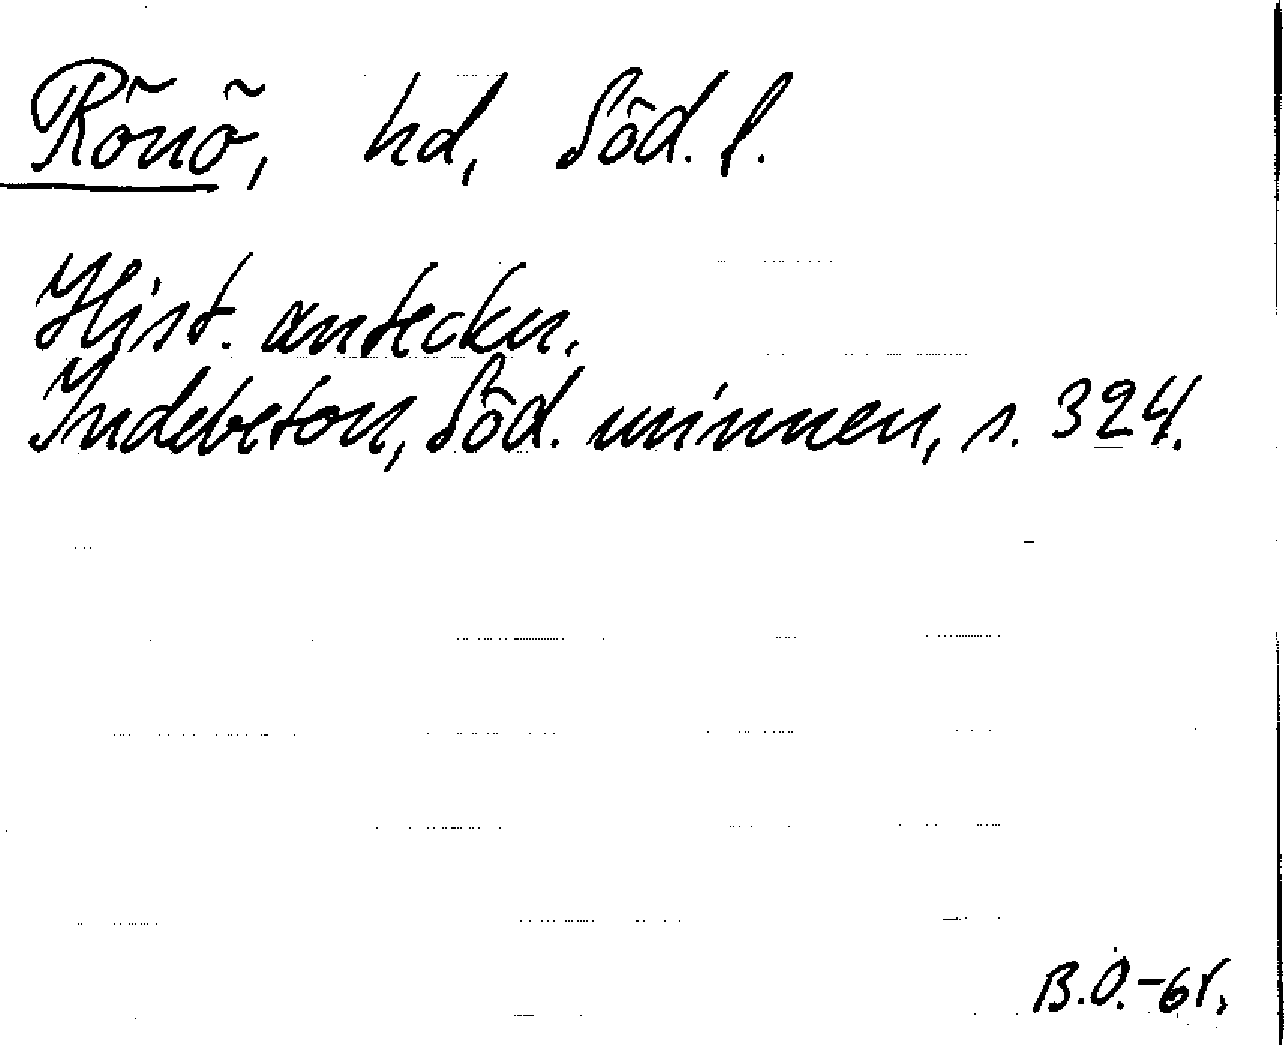 Rönö, hd, Söd. l.
Hist. anteckn.
Indebetou, Söd. minnen, s. 324.
B.Ö.-61.